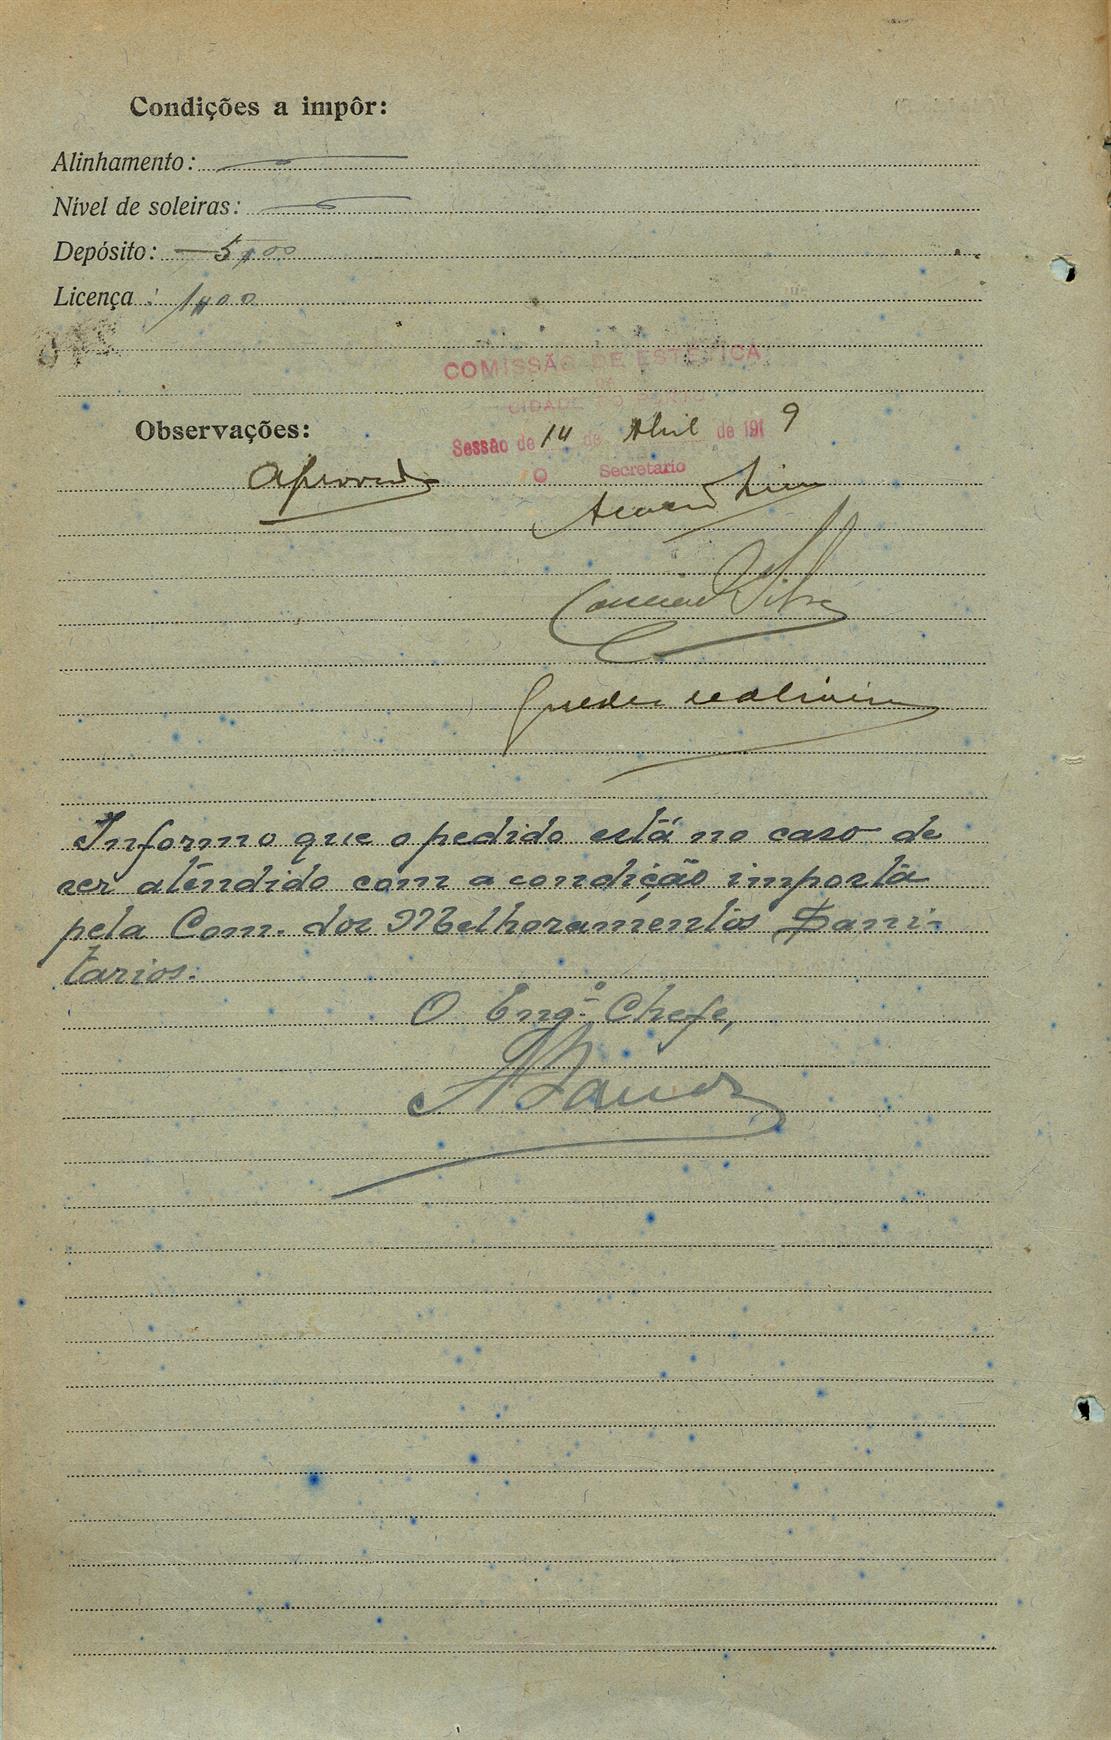 Condições a impôr:
Alinhamento:
Nivel de soleiras:
Depósito: 5$00
Licença : 1$00
COMISSÃO DE ESTÉTICA
DA
CIDADE DO PORTO
Observações:
Sessão de 14 de Abril de 1919
O Secretario
Aprovado
Guedes de Oliveira
Informo que o pedido está no caso de
ser atendido com a condição imposta
pela Com. dos Melhoramentos Sani-
tarios.
O Engº Chefe,